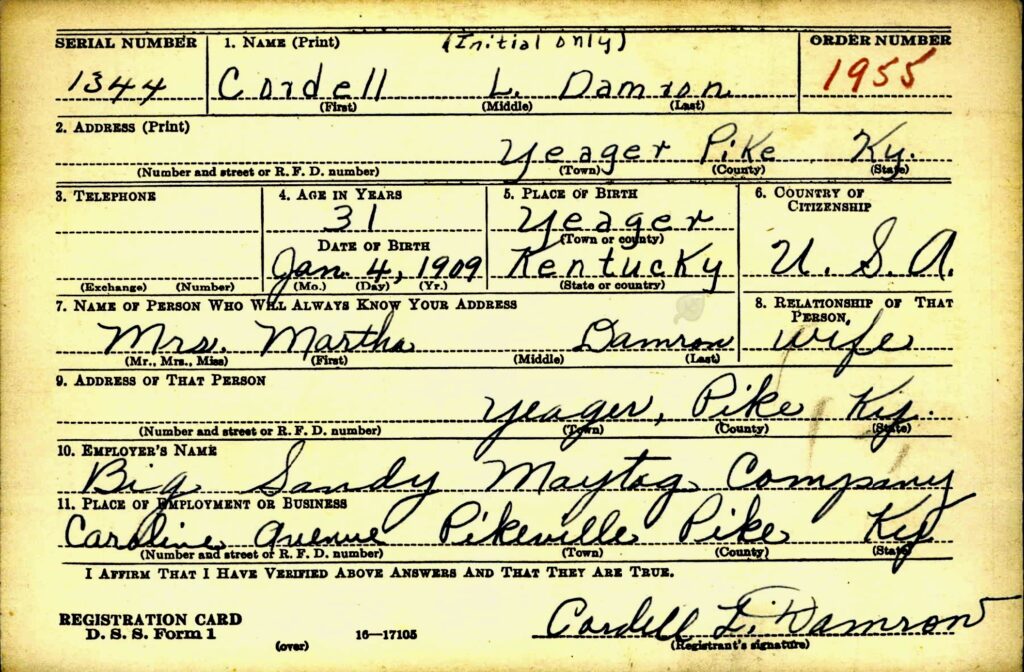 SERIAL NUMBER 1. NAME (Print) (Initial only) ORDER NUMBER
1344 Cordell L. Damron 1955
(First) (Middle) (Last)
2. ADDRESS (Print)
Yeager Pike Ky.
(Number and street or R. F. D. number) (Town) (County) (State)
3. TELEPHONE 4. AGE IN YEARS 5. PLACE OF BIRTH 6. COUNTRY OF CITIZENSHIP
31 Yeager
DATE OF BIRTH (Town or county)
Jan. 4, 1909 Kentucky U. S. A.
(Exchange) (Number) (Mo.) (Day) (Yr.) (State or country)
7. NAME OF PERSON WHO WILL ALWAYS KNOW YOUR ADDRESS 8. RELATIONSHIP OF THAT PERSON
Mrs. Martha Damron wife
(Mr., Mrs., Miss) (First) (Middle) (Last)
9. ADDRESS OF THAT PERSON
Yeager, Pike Ky.
(Number and street or R. F. D. number) (Town) (County) (State)
10. EMPLOYER'S NAME
Big Sandy Maytog Company
11. PLACE OF EMPLOYMENT OR BUSINESS
Caroline Avenue Pikeville Pike Ky
(Number and street or R. F. D. number) (Town) (County) (State)
I AFFIRM THAT I HAVE VERIFIED ABOVE ANSWERS AND THAT THEY ARE TRUE.
REGISTRATION CARD
D. S. S. Form 1 (over) 16—17105 Cordell L. Damron
(Registrant's signature)